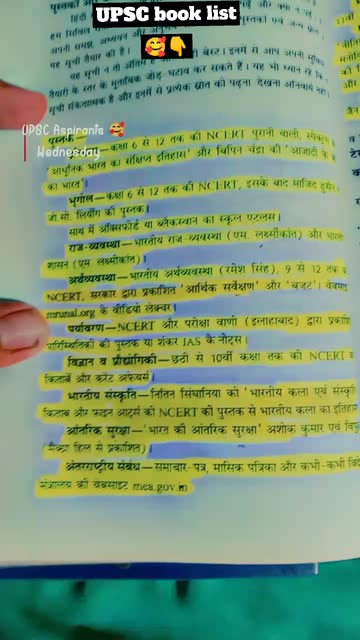 UPSC book list
🥰👇
हम सिविल
अपनी समझ, अध्ययन और
यह सूची तैयार की है।
यह सूची न तो अंतिम है
तैयारी के स्तर के मुताबिक जोड़-घटाव कर सकते हैं। यह भी ध्यान रहे कि
सूची संकेतात्मक है और इनमें से प्रत्येक स्रोत को पढ़ना देखना अनिवार्य नहीं।
UPSC Aspirants 🥰
Wednesday
कक्षा 6 से 12 तक की NCERT पुरानी वाली, स्पेक्ट्रम
'आधुनिक भारत का संक्षिप्त इतिहास' और बिपिन चंद्रा की 'आजादी के
का भारत'।
भूगोल—कक्षा 6 से 12 तक की NCERT, इसके बाद माजिद हुसैन
जी.सी. लियोंग की पुस्तक।
साथ में ऑक्सफोर्ड या ब्लैकस्वान का स्कूल एटलस।
राज-व्यवस्था—भारतीय राज-व्यवस्था (एम. लक्ष्मीकांत) और
शासन (एम. लक्ष्मीकांत)।
अर्थव्यवस्था—भारतीय अर्थव्यवस्था (रमेश सिंह), 9 से 12 तक
NCERT, सरकार द्वारा प्रकाशित 'आर्थिक सर्वेक्षण' और 'बजट'।
mrunal.org के वीडियो लेक्चर।
पर्यावरण—NCERT और परीक्षा वाणी (इलाहाबाद) द्वारा
पारिस्थितिकी की पुस्तक या शंकर IAS के नोट्स।
विज्ञान व प्रौद्योगिकी—छठी से 10वीं कक्षा तक की NCERT
किताबें और करेंट अफेयर्स।
भारतीय संस्कृति—नितिन सिंघानिया की 'भारतीय कला एवं
किताब और फाइन आर्ट्स की NCERT की पुस्तक से भारतीय कला का इतिहास
आंतरिक सुरक्षा—'भारत की आंतरिक सुरक्षा' अशोक कुमार एवं
(मैक्ग्रा हिल से प्रकाशित)।
अंतरराष्ट्रीय संबंध—समाचार-पत्र, मासिक पत्रिका और कभी-कभी
मंत्रालय की वेबसाइट mea.gov.in